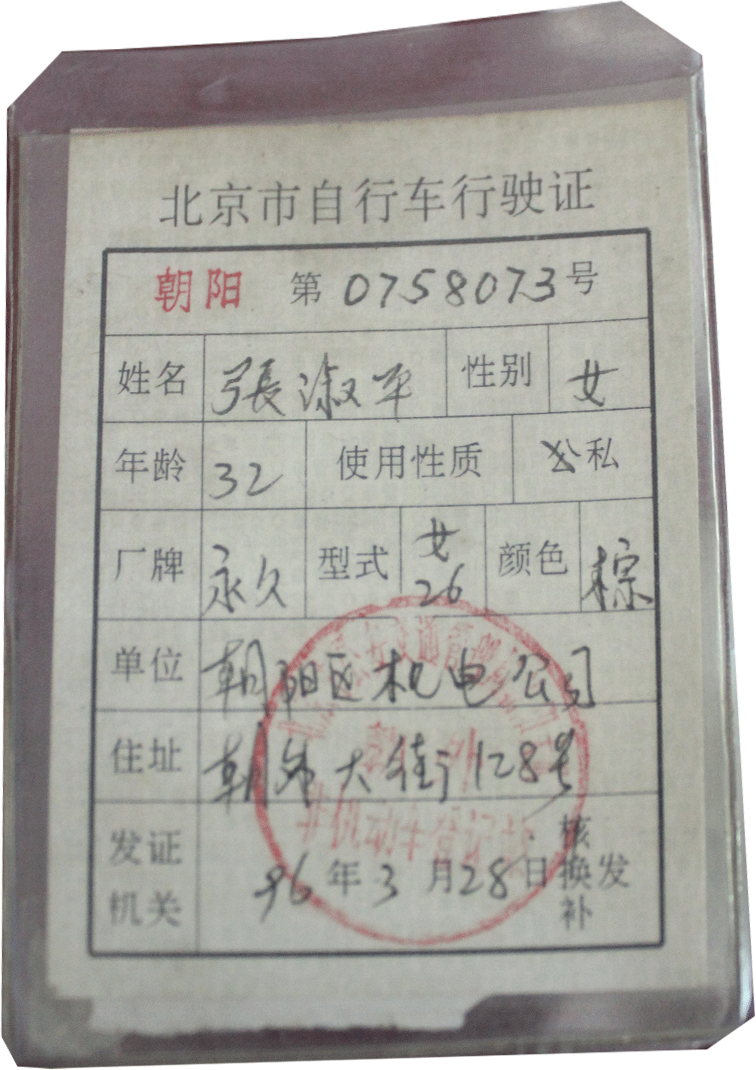 北京市自行车行驶证
朝阳 第0758073号
姓名 張淑平 性别 女
年龄 32 使用性质 公私
厂牌 永久 型式 女26 颜色 棕
单位 朝阳区机电公司
住址 朝外大街128号
发证机关 96年3月28日 核换补发
非机动车登记